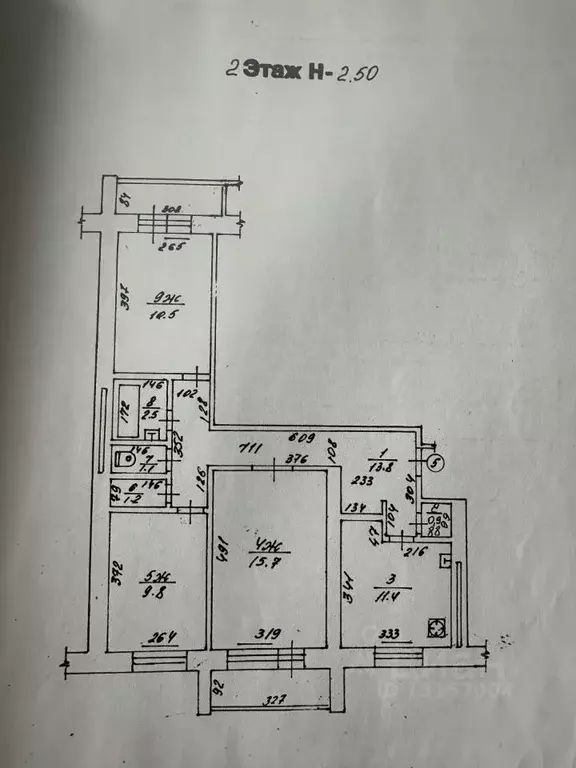 2 Этаж Н-2.50
84
308
265
397
9ж
10.5
146
102
172
8
2.5
128
352
146
7
1.1
711
609
108
1
13.8
5
376
233
304
79
6
1.2
146
126
134
104
2
0.9
0.8
47
216
491
4ж
15.7
392
5ж
9.8
344
3
11.4
264
319
333
92
327